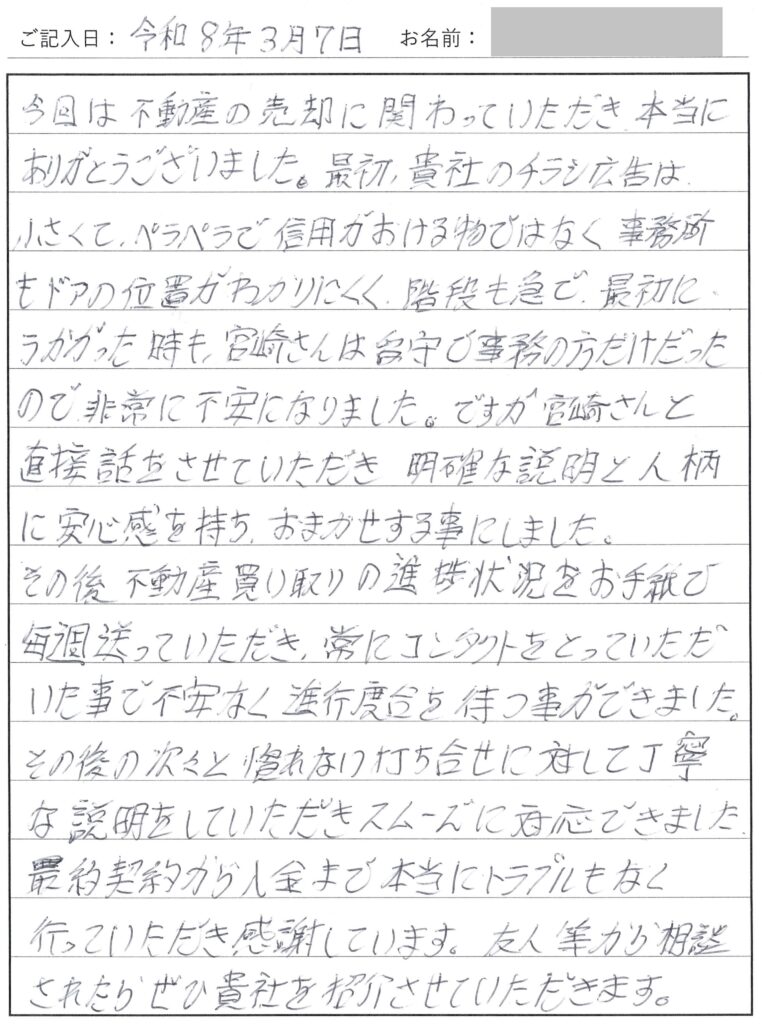 ご記入日： 令和8年3月7日 お名前：
今回は不動産の売却に関わっていただき、本当に
ありがとうございました。最初、貴社のチラシ広告は、
小さくて、ペラペラで信用がおける物ではなく事務所
もドアの位置がわかりにくく、階段も急で、最初に
うかがった時も、宮崎さんは留守で事務の方だけだった
ので、非常に不安になりました。ですが宮崎さんと
直接話をさせていただき 明確な説明と人柄
に安心感を持ち、おまかせする事にしました。
その後不動産買り取りの進捗状況をお手紙で
毎週送っていただき、常にコンタクトをとっていただ
いた事で不安なく進行度合を待つ事ができました。
その後の次々と慣れない打ち合せに対して丁寧
な説明をしていただきスムーズに対応できました。
最約契約から入金まで本当にトラブルもなく
行っていただき感謝しています。友人等から相談
されたらぜひ貴社を紹介させていただきます。